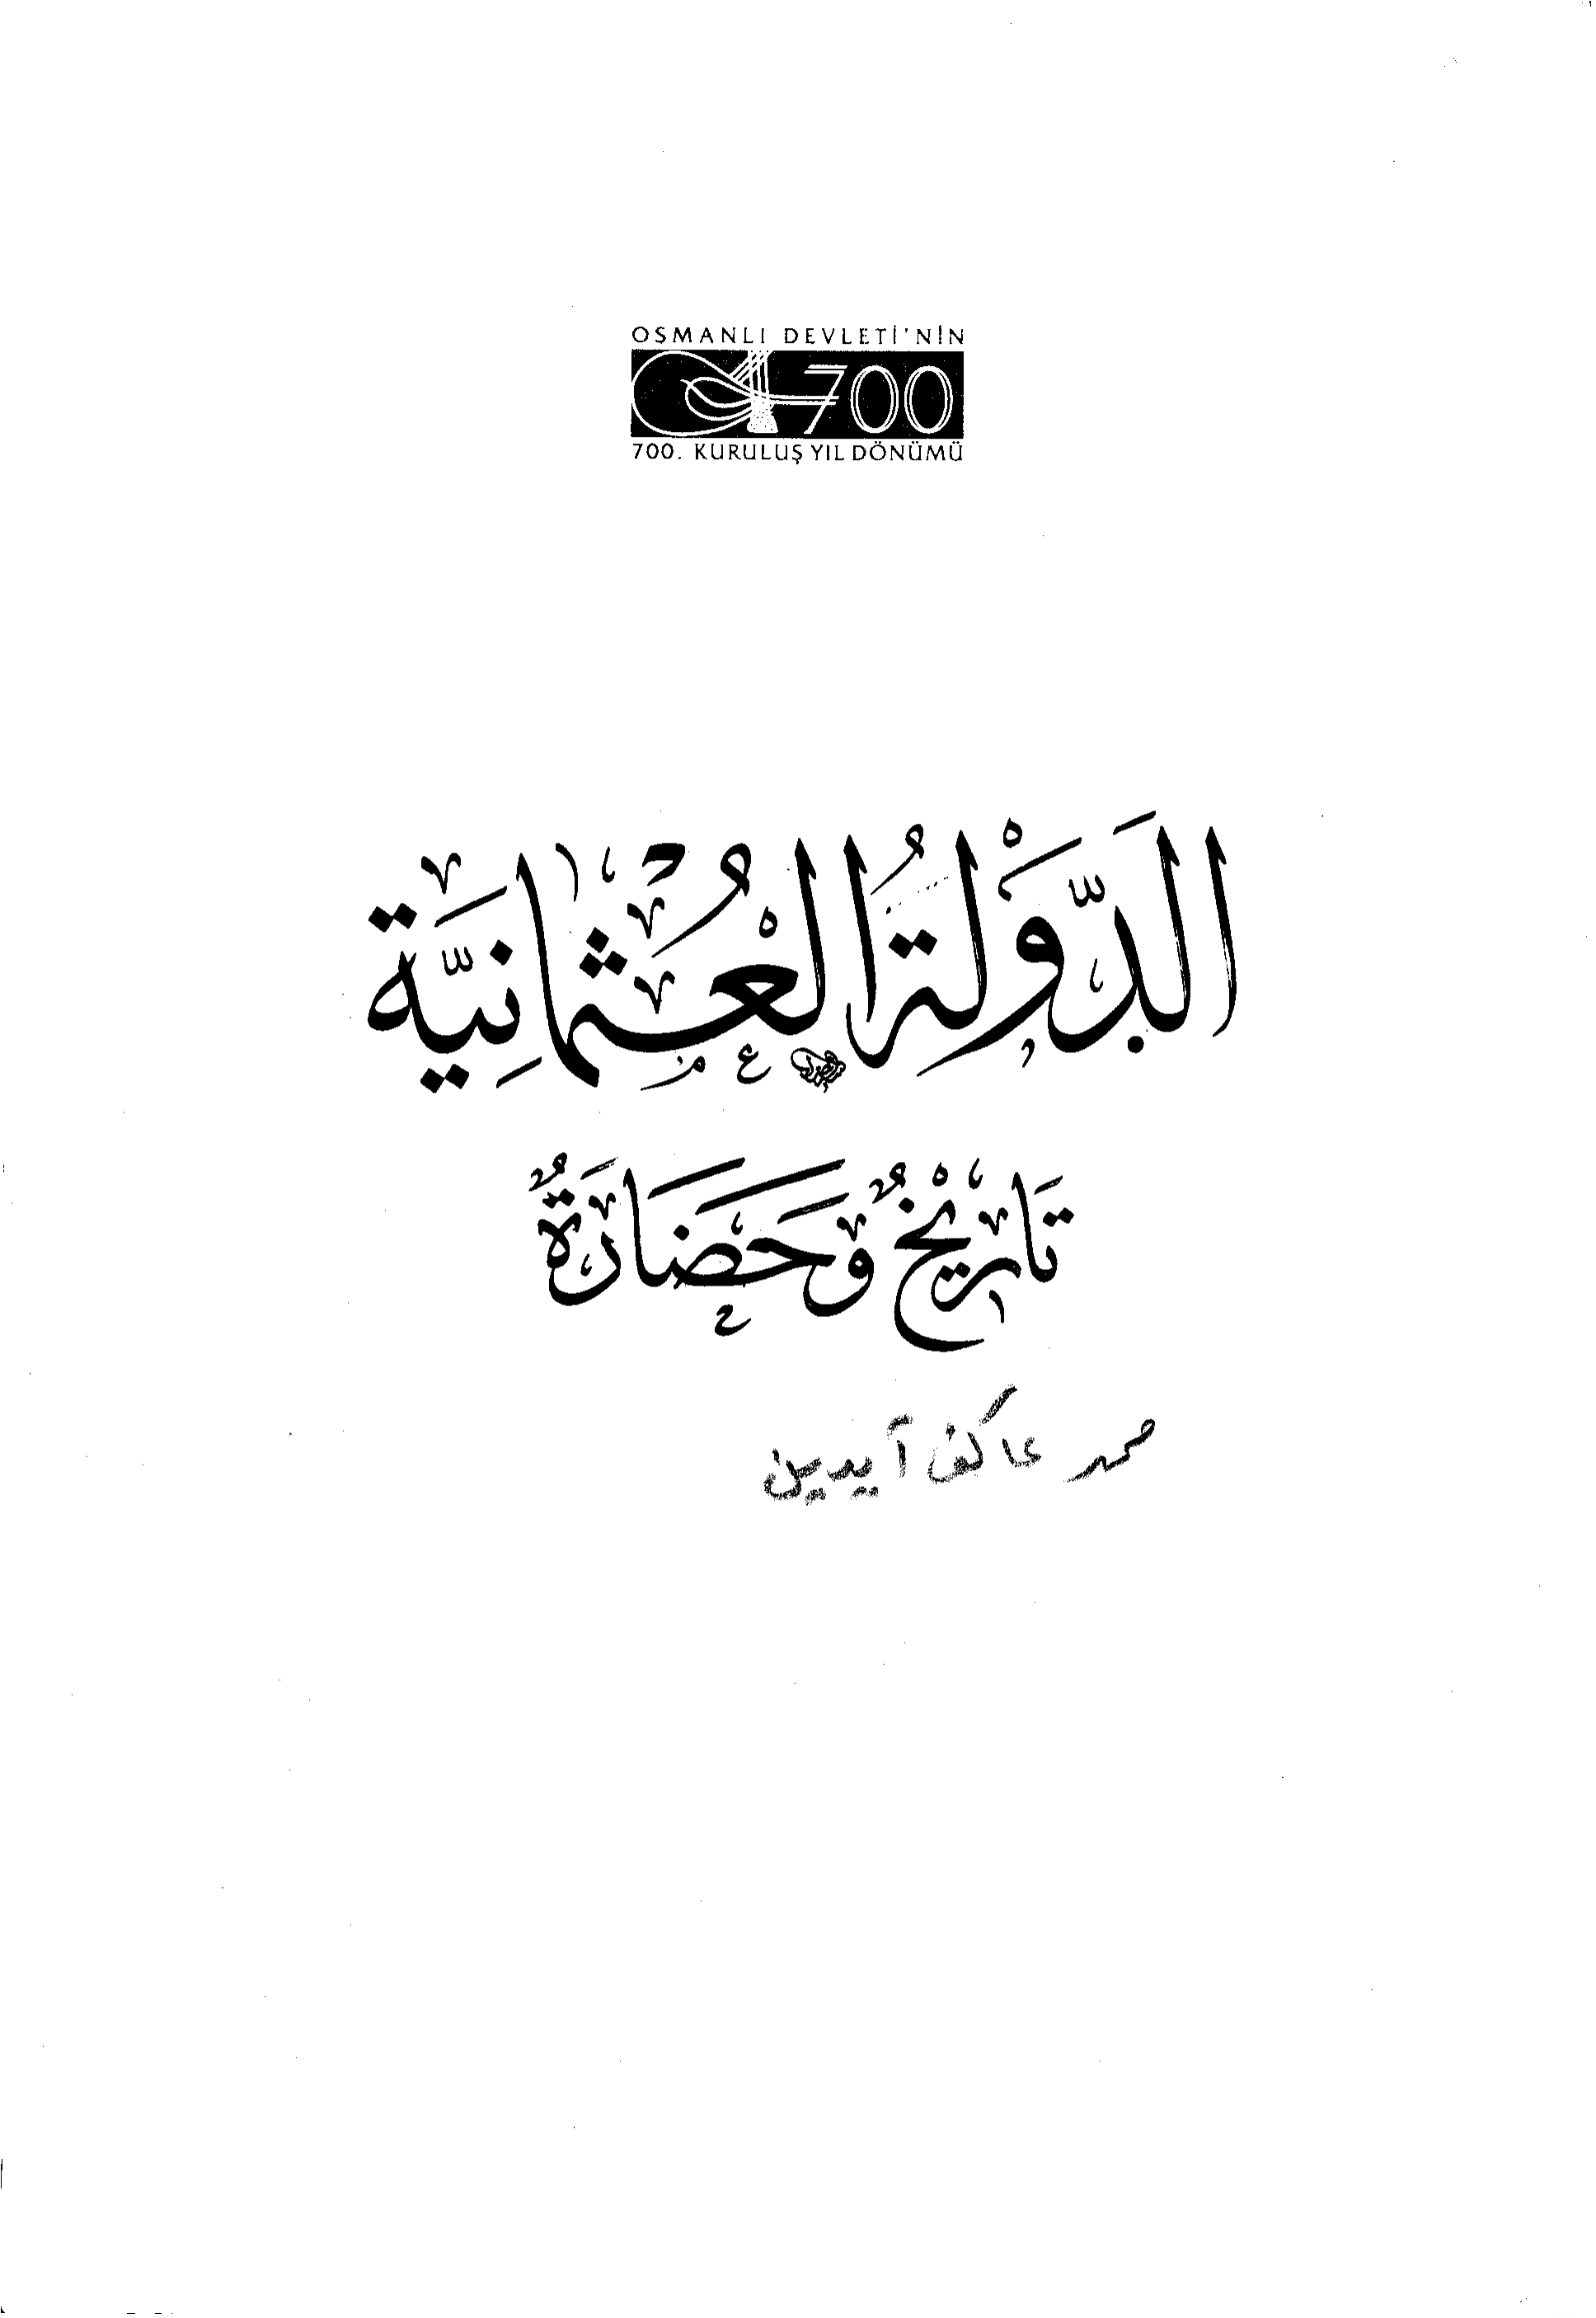 OSMANLI DEVLETİ'NİN
700
700. KURULUŞ YIL DÖNÜMÜ
الدَّوْلَةُ الْعُثْمَانِيَّة
تَارِيْخٌ وَحَضَارَةٌ
محمد عاكف آيدين